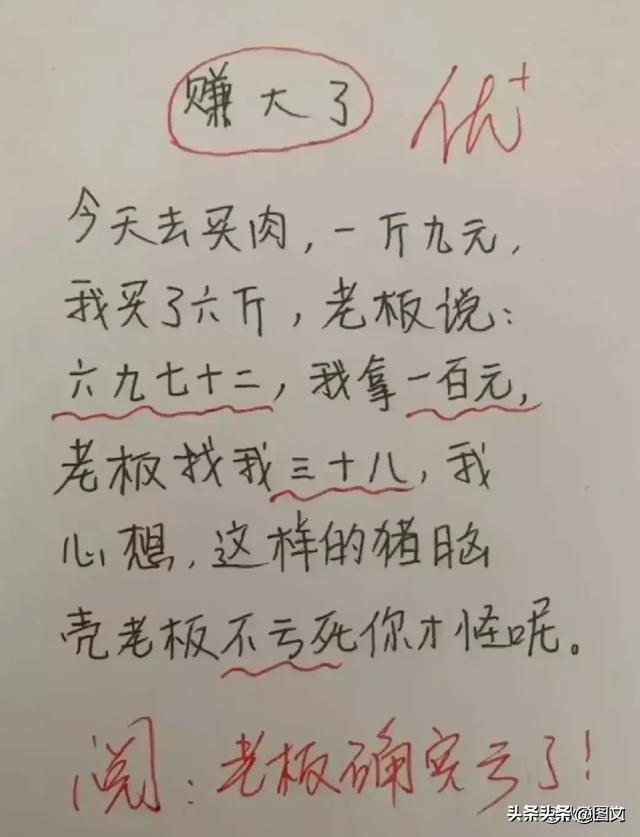 赚大了
优+
今天去买肉，一斤九元，
我买了六斤，老板说：
六九七十二，我拿一百元，
老板找我三十八，我
心想，这样的猪脑
壳老板不亏死你才怪呢。
阅：老板确实亏了！
头条头条@图文